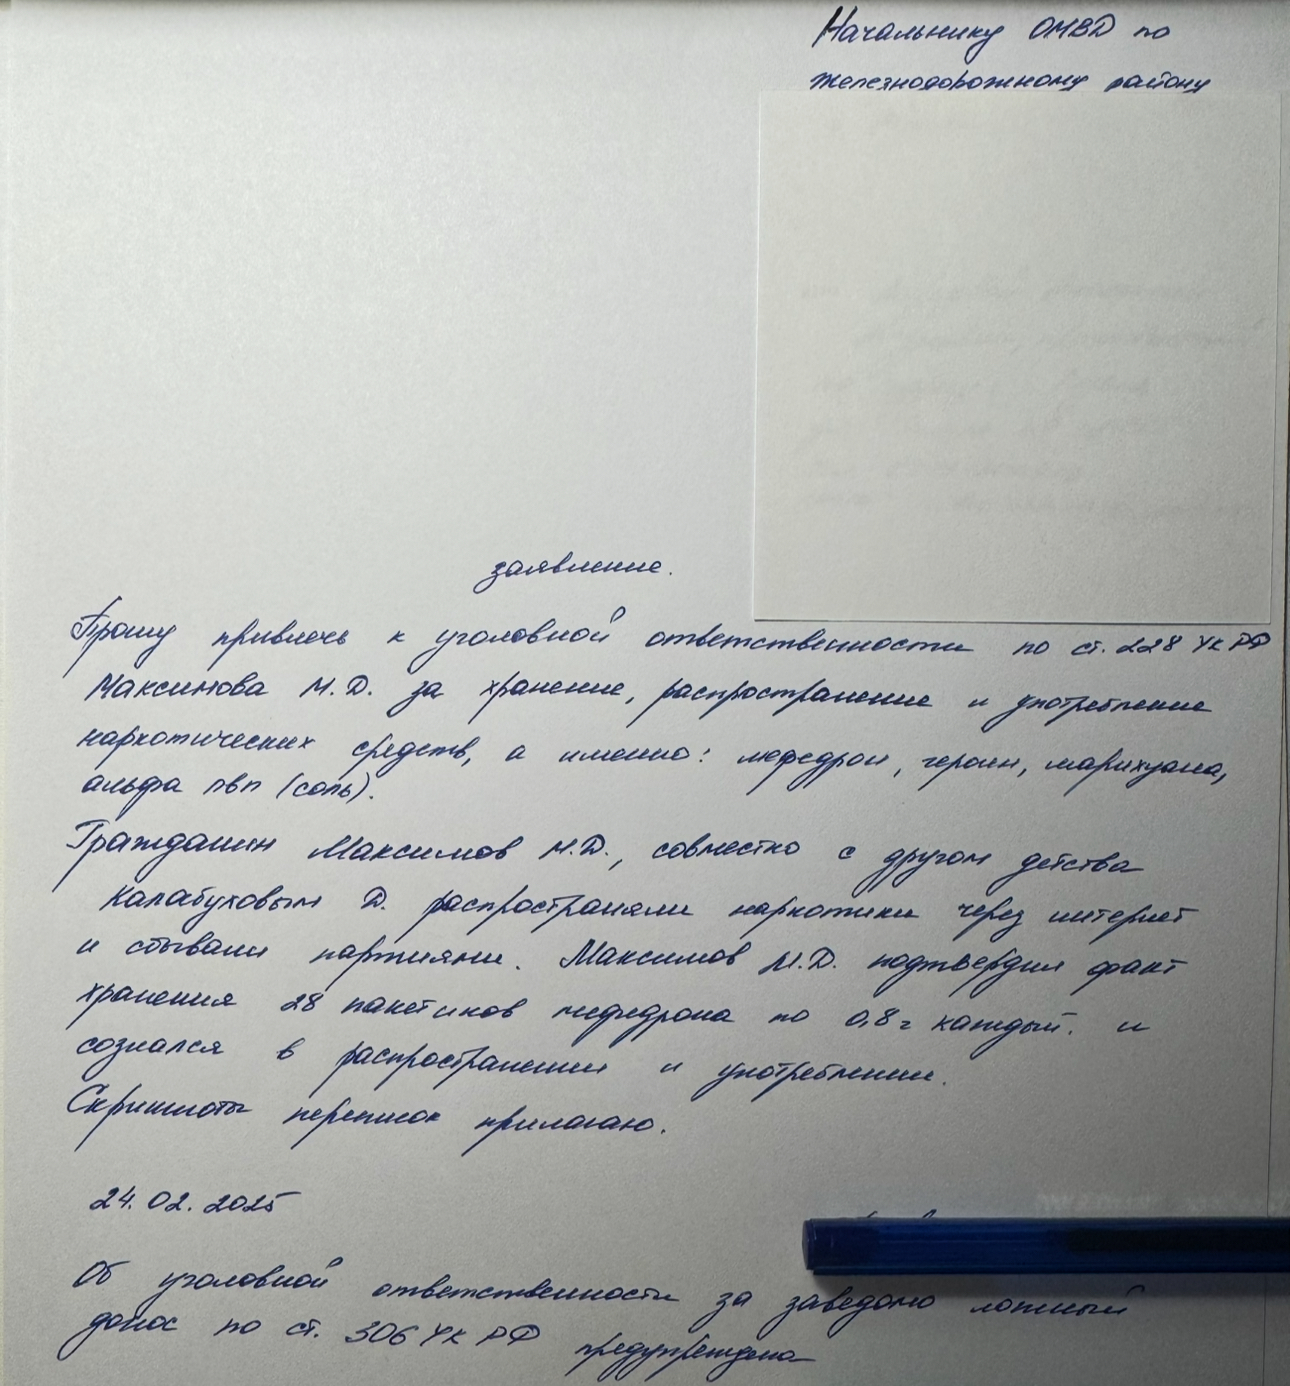 Начальнику ОМВД по
Железнодорожному району
заявление.
Прошу привлечь к уголовной ответственности по ст. 228 УК РФ
Максимова М.Д. за хранение, распространение и употребление
наркотических средств, а именно: мефедрон, героин, марихуана,
альфа пвп (соль).
Гражданин Максимов М.Д., совместно с другом детства
Калабуховым Д. распространяли наркотики через интернет
и сбывали партиями. Максимов М.Д. подтвердил факт
хранения 28 пакетиков мефедрона по 0,8 г каждый. и
сознался в распространении и употреблении.
Скриншоты переписок прилагаю.
24.02.2025
Об уголовной ответственности за заведомо ложный
донос по ст. 306 УК РФ предупреждена